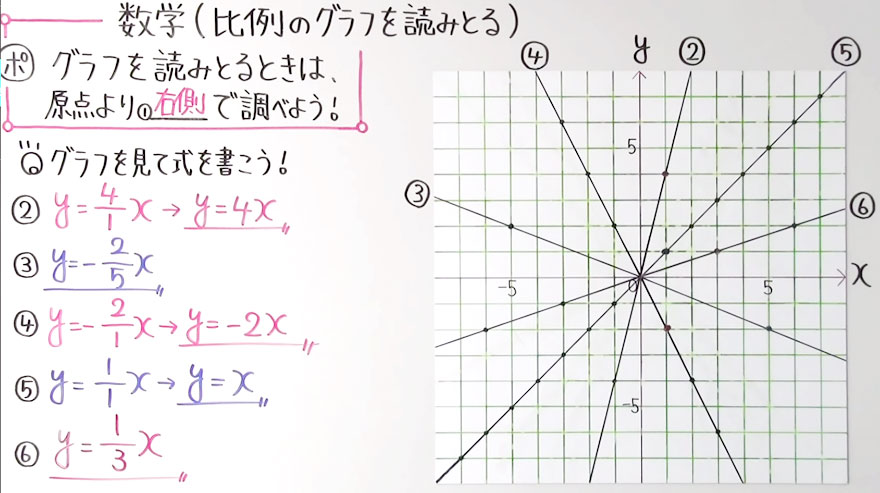 数学(比例のグラフを読みとる)
ポ グラフを読みとるときは、
原点より①右側で調べよう!
グラフを見て式を書こう!
② y=4/1x→y=4x
③ y=-2/5x
④ y=-2/1x→y=-2x
⑤ y=1/1x→y=x
⑥ y=1/3x
④ y ② ⑤
5
③ ⑥
-5 0 5 x
-5